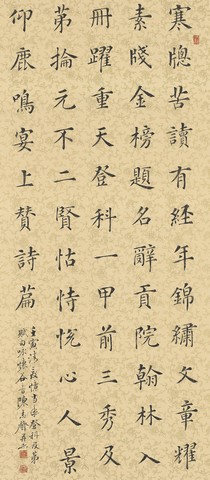 寒牕苦讀有経年錦繡文章耀
素牋金榜題名辭貢院翰林入
冊躍重天登科一甲前三秀及
苐掄元不二賢怙恃悅心人景
仰鹿鳴宴上賛詩篇
壬寅